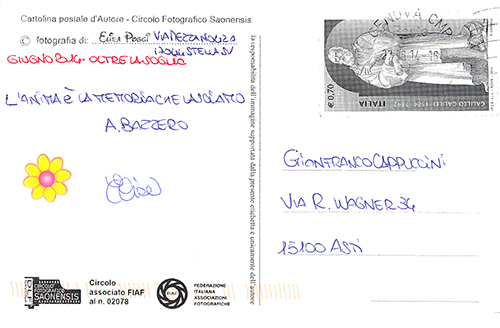 Cartolina postale d'Autore - Circolo Fotografico Saonensis
© fotografia di: Elisa Poggi VIA MEZZANOTZA
GIUGNO 2014 - OLTRE LA SOGLIA
L'ANIMA È LA MEMORIA CHE LASCIAMO
A. BAZZERO
Elisa
CIRCOLO
FOTOGRAFICO
SAONENSIS
Circolo
associato FIAF
al n. 02078
FIAF
FEDERAZIONE
ITALIANA
ASSOCIAZIONI
FOTOGRAFICHE
la responsabilità dell'immagine supportata dalla presente celebetta è unicamente dell'autore
GENOVA CMP
€ 0,70
ITALIA
GALILEO GALILEI 1564 - 1642
GIANFRANCO CAPPUCCINI
VIA R. WAGNER 34
15100 ASTI